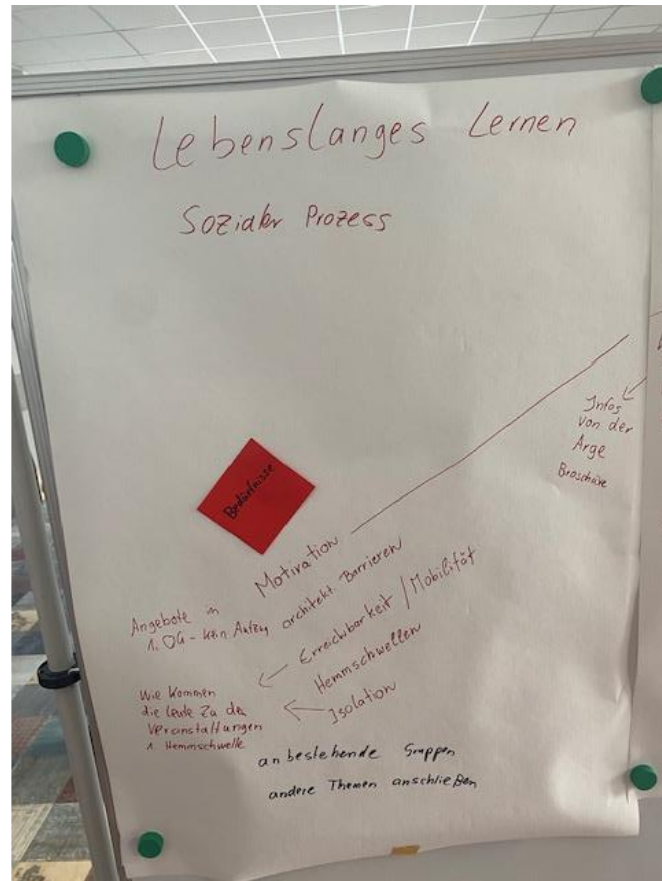 Lebenslanges Lernen
Sozialer Prozess
Infos
von der
Arge
Broschüre
Bedürfnisse
Motivation
architekt. Barrieren
Angebote in
1. OG - kein Aufzug
Erreichbarkeit / Mobilität
Hemmschwellen
Isolation
Wie kommen
die Leute zu den
Veranstaltungen
1. Hemmschwelle
an bestehende Gruppen
andere Themen anschließen